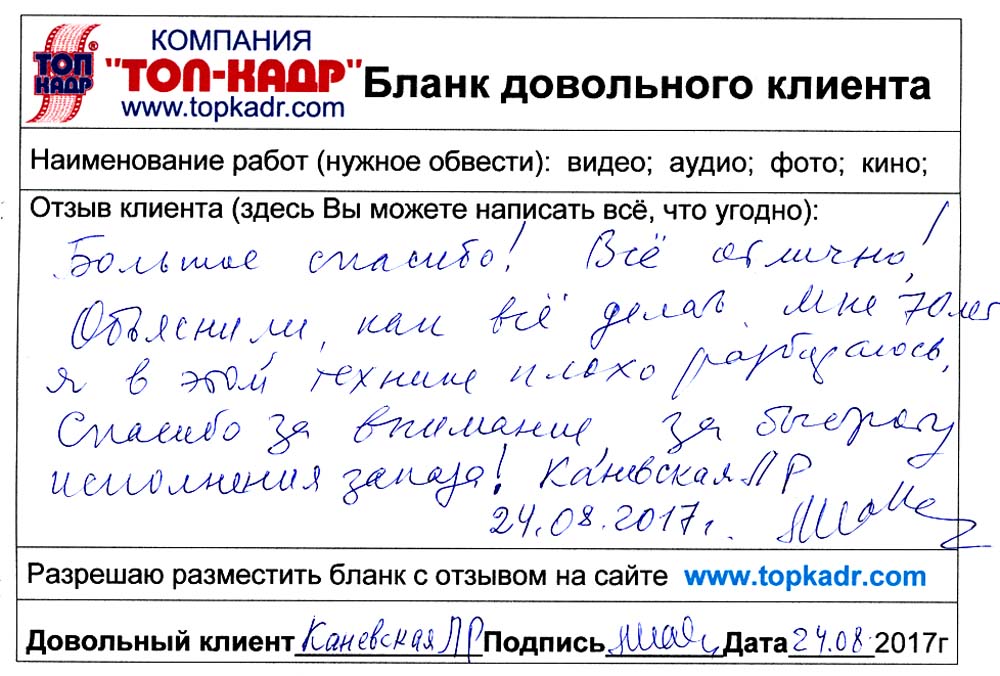 ТОП КАДР ®
КОМПАНИЯ
"ТОП-КАДР"
www.topkadr.com
Бланк довольного клиента
Наименование работ (нужное обвести): видео; аудио; фото; кино;
Отзыв клиента (здесь Вы можете написать всё, что угодно):
Большое спасибо! Всё отлично!
Объяснили, как всё делать. Мне 70 лет
я в этой технике плохо разбираюсь,
Спасибо за внимание, за быстроту
исполнения заказа! Каневская ЛР
24.08.2017г.
Разрешаю разместить бланк с отзывом на сайте www.topkadr.com
Довольный клиент Каневская ЛР Подпись Дата 24.08 2017г